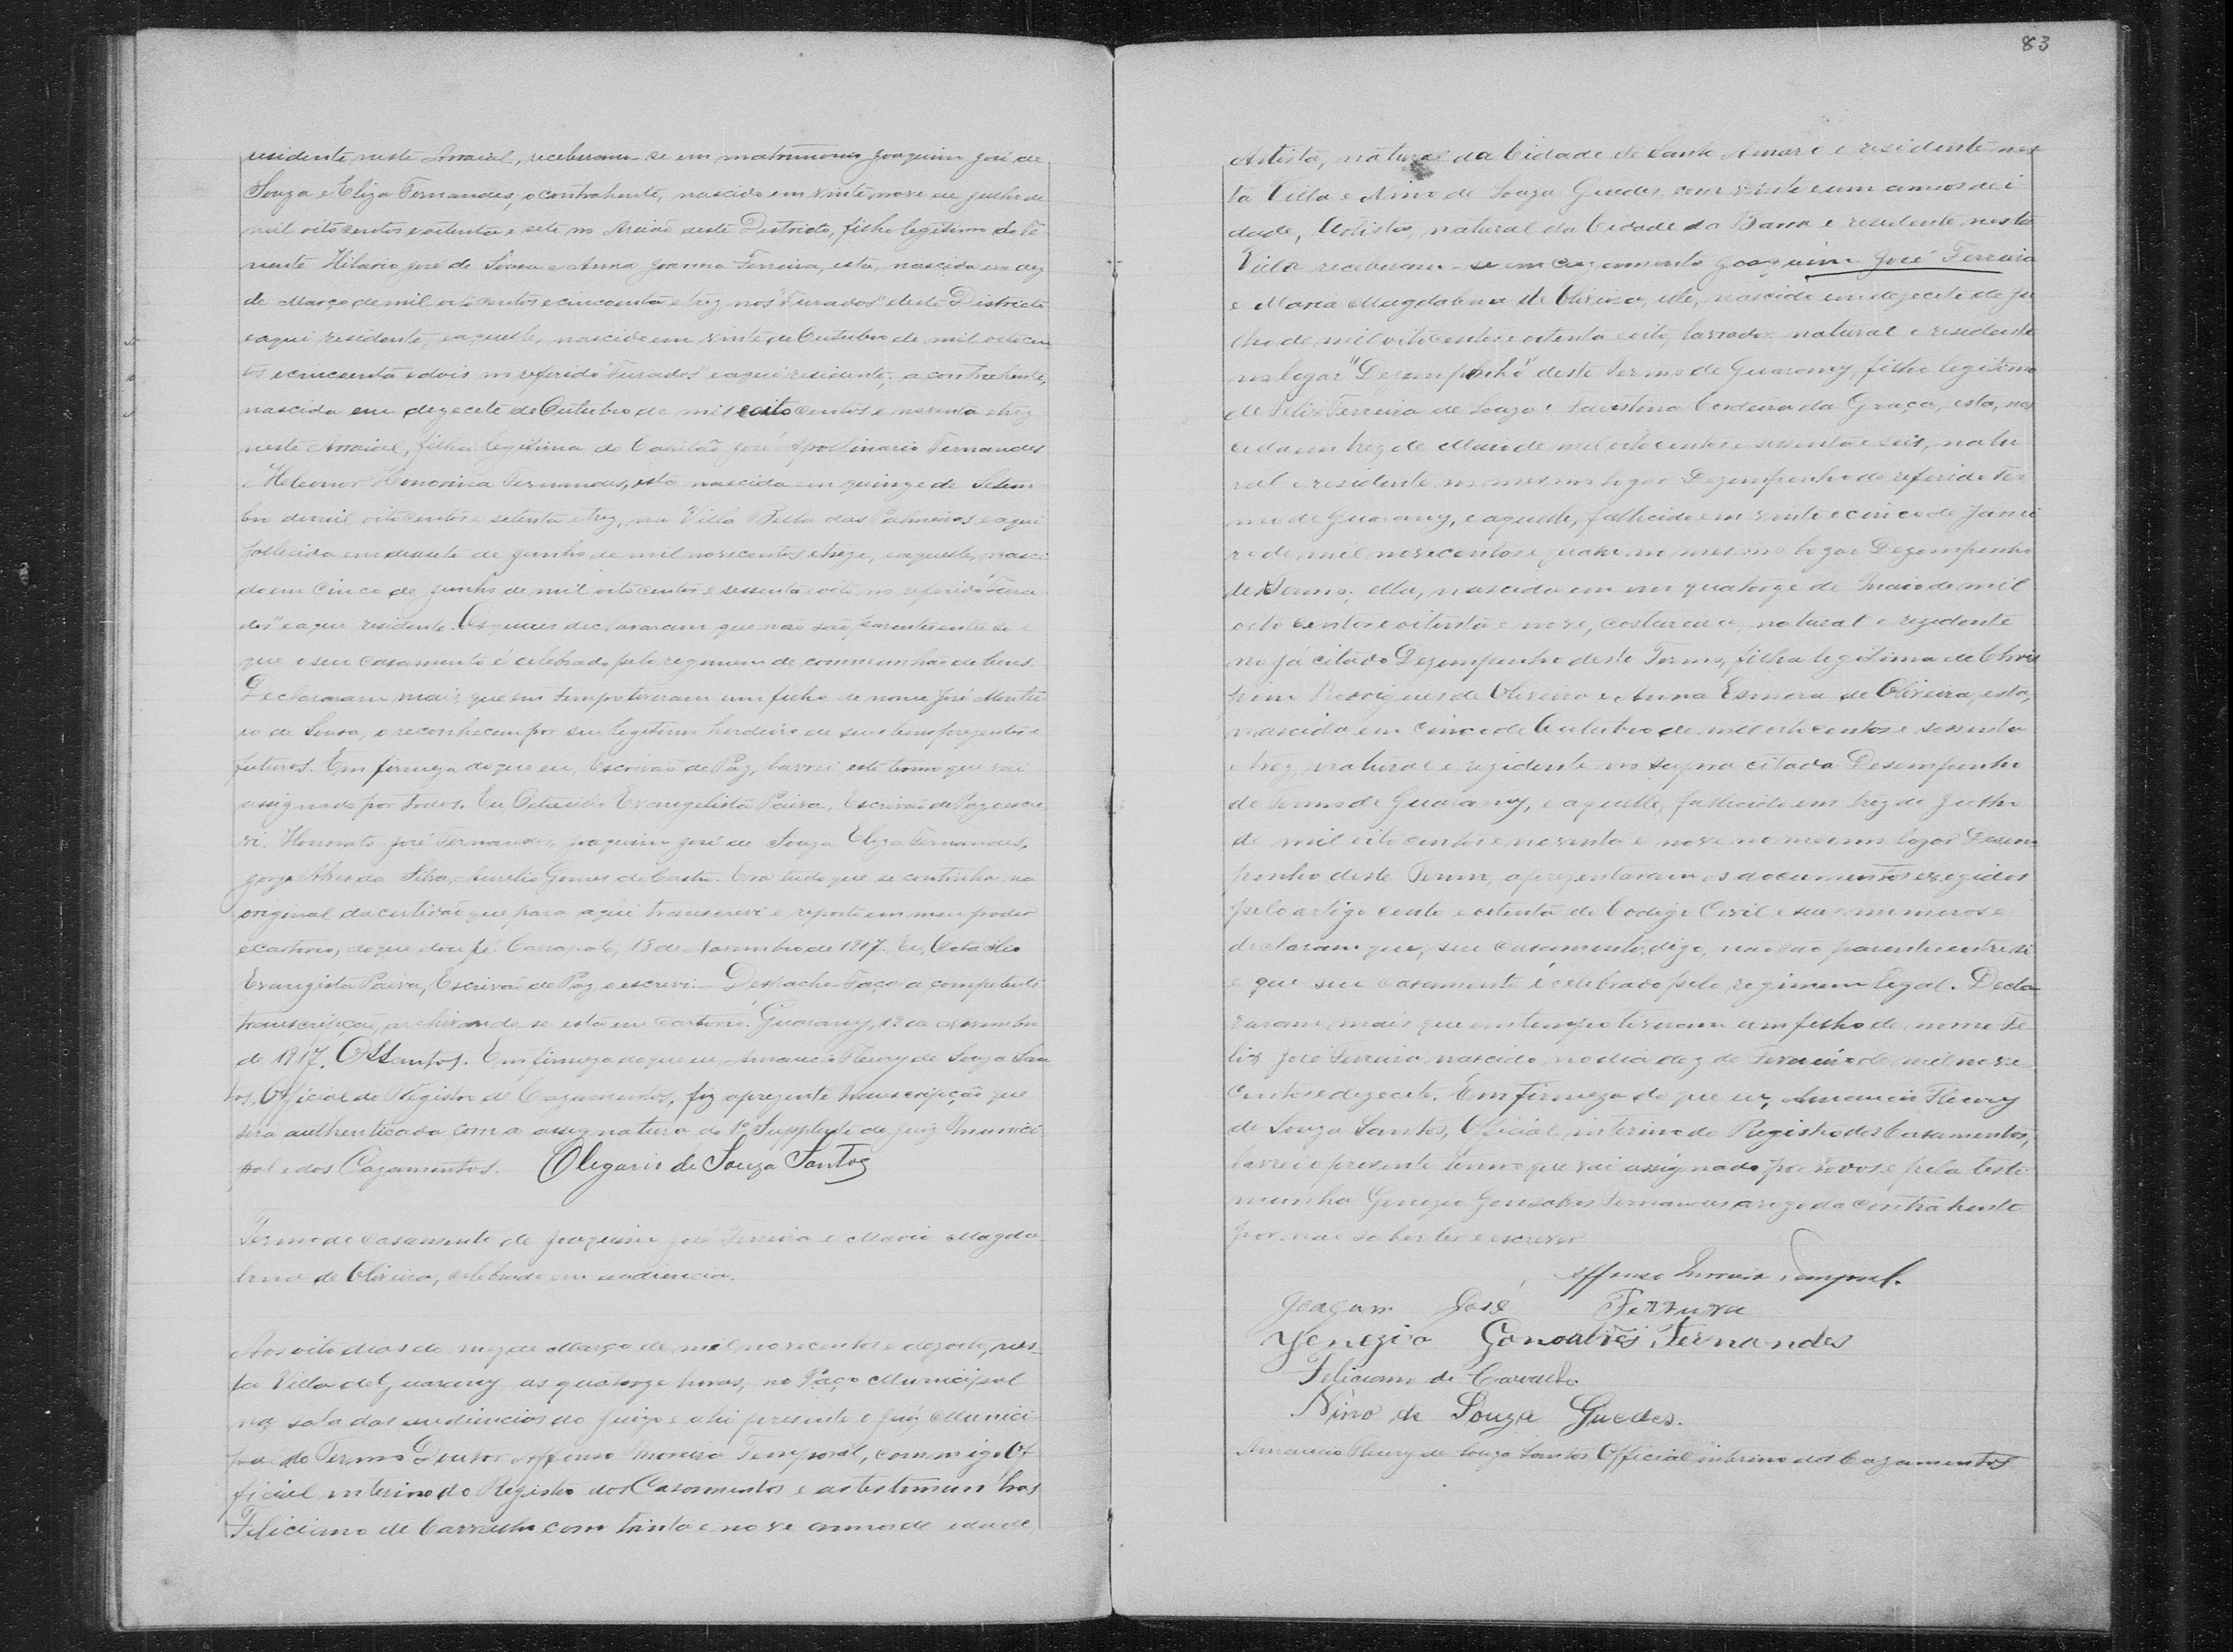 residente neste Arraial, receberam-se em matrimonio Joaquim José de
Souza e Eliza Fernandes, o contrahente, nascido em vinte nove de Julho de
mil oito centos e oitenta e sete no deste Districto, filho legitimo do Te
nente Hilario José de Sousa e Anna Joanna Ferreira, esta, nascida em dez
de Março de mil oito centos e cincoenta e trez, nos "Furados" deste Districto
e aqui residente, e aquelle, nascido em vinte de Outubro de mil oito cen
tos e cincoenta e dois no referido "Furados" e aqui residente; a contrahente,
nascida em dezecete de Outubro de mil e oito centos e noventa e trez
neste Arraial, filha legitima do Capitão José Apollinario Fernandes
e Heleonor Honorina Fernandes, esta nascida em quinze de Setem
bro de mil oito centos e setenta e trez, na Villa Bella das Palmeiras e aqui
fallecida em de Junho de mil novecentos e treze, e aquelle, nasci
do em cinco de Junho de mil oito centos e sessenta e oito no referido "Fura
dos" e aqui residente. Os quaes declararam que não são parentes entre si e
que o seu casamento é celebrado pelo regimem de communhão de bens.
Declararam mais que em tempo tiveram um filho de nome José
ro de Sousa, o reconhecem por seu legitimo herdeiro de seus bens prezentes e
futuros. Em firmeza do que eu, Escrivão de Paz, lavrei este termo que vai
assignado por todos. Eu Octacilio Evangelista Paiva, Escrivão de Paz escre
vi. Honorato José Fernandes, Joaquim José de Souza Eliza Fernandes,
Jorge Alves da Silva, Aurelio Gomes de Castro. Era tudo que se continha na
original da certidão que para aqui transcrevi e reporto em meu poder
e cartorio, do que dou fé. 18 de Novembro de 1917. Eu, Octacilio
Evangista Paiva, Escrivão de Paz o escrevi.- Despacho - Faça a competente
transcripção, archivando-se esta em cartorio. Guarany, 19 de Novembro
de 1917. OSantos. Em firmeza do que eu Amancio Fleury de Souza San
tos, Official do Registro de Cazamentos, fiz a prezente transcripção que
será authenticada com a assignatura do 1º Supplente de Juiz Munici
pal e dos Cazamentos. Olegario de Souza Santos
Termo de casamento de Joaquim José Ferreira e Maria Magda
lena de Oliveira, celebrado em audiencia.
Aos oito dias do mez de Março de mil novecentos e dezoito, nes-
ta Villa de Guarany, as quatorze horas, no Paço Municipal
na sala das audiencias do Juizo e ahi presente o Juiz Munici-
pal do Termo Doutor Affonso Moreira Temporal, commigo Of
ficial interino do Registro dos Casamentos e as testimunhas
Feliciano de Carvalho com trinta e nove annos de edade
83
Artista, natural da Cidade de Santo Amaro e residente nes
ta Villa e Nino de Souza Guedes, com vinte e um annos de i-
dade, Artista, natural da Cidade da Barra e residente nesta
Villa receberam-se em cazamento Joaquim José Ferreira
e Maria Magdalena de Oliveira, elle, nascido em dezecete de Ju
lho de mil oito centos e oitenta e oito, lavrador, natural e residente
no logar "Dezempenho" deste Termo de Guarany, filho legitimo
de Felix Ferreira de Souza e Faustina Cordeiro da Graça, esta, nas
cida em trez de Maio de mil oito centos e sessenta e seis, natu
ral e residente no mesmo logar Dezempenho do referido Ter
mo de Guarany, e aquelle, fallecido em vinte e cinco de Janei
ro de mil novecentos e quatro no mesmo logar Dezempenho
deste Termo; ella, nascida em em quatorze de Maio de mil
oito centos e oitenta e nove, costureira, natural e rezidente
no já citado Dezempenho deste Termo, filha legitima de Chris
pim Rodrigues de Oliveira e Anna Esmera de Oliveira, esta,
nascida em cinco de Outubro de mil oito centos e sessenta
e trez, natural e rezidente no supra citado Desempenho
do Termo de Guarany, e aquelle, fallecido em trez de Julho
de mil oito centos e noventa e nove no mesmo logar Desem-
penho deste Termo, aprezentaram os documentos exegidos
pelo artigo cento e oitenta do Codigo Civil e seus numeros e
declaram que, seu casamento, digo, não são parentes entre si
e que seu casamento é celebrado pelo regimem legal. Decla
raram mais que em tempo tiveram um filho de nome Fe
lix José Ferreira nascido no dia dez de Fevereiro de mil nove
centos e dezecete. Em firmeza do que eu, Amancio Fleury
de Souza Santos, Official interino do Registro dos Casamentos,
lavrei o presente termo que vai assignado por todos e pela teste-
munha Genezio Gonsalves Fernandes a rogo da contrahente
por não saber ler e escrever
Affonso Moreira Temporal.
Joaqum José Ferrura
Genezio Gonsalves Fernandes
Feliciano de Carvalho
Nino de Souza Guedes.
Amancio Fleury de Souza Santos Official interino dos Cazamentos